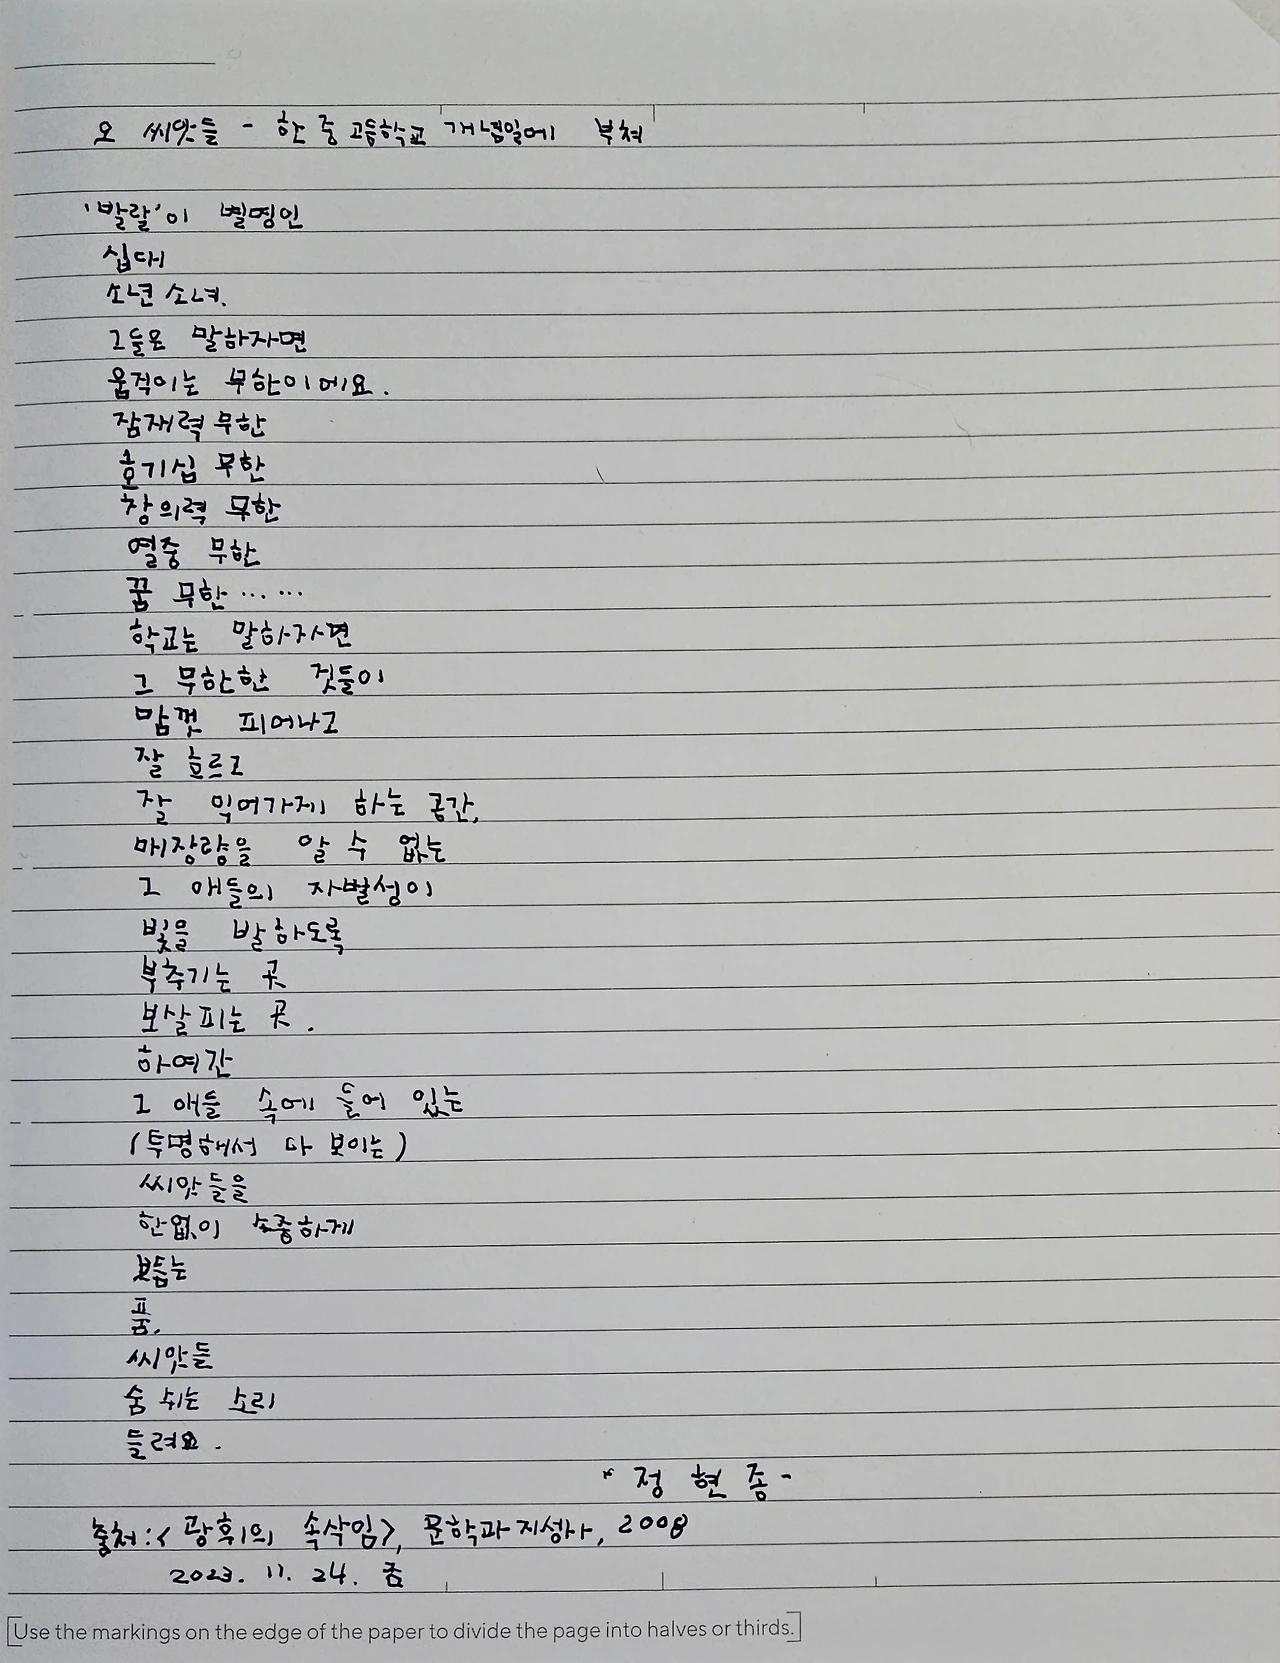 오 씨앗들 - 한중고등학교 개념일에 부쳐
'발랄'이 별명인
십대
소년 소녀.
그들은 말하자면
움직이는 무한이에요.
잠재력 무한
호기심 무한
창의력 무한
열중 무한
꿈 무한……
학교는 말하자면
그 무한한 것들이
맘껏 피어나고
잘 흐르고
잘 익어가게 하는 공간,
매장량을 알 수 없는
그 애들의 자발성이
빛을 발하도록
부추기는 곳
보살피는 곳.
하여간
그 애들 속에 들어 있는
(투명해서 다 보이는)
씨앗들을
한없이 소중하게
보듬는
품,
씨앗들
숨 쉬는 소리
들려요.
* 정현종 -
출처:<광휘의 속삭임>, 문학과지성사, 2008
2023. 11. 24. 금
Use the markings on the edge of the paper to divide the page into halves or thirds.